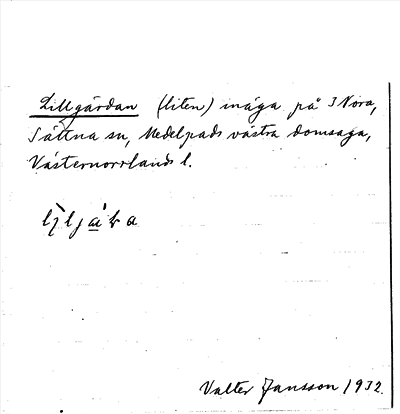 Lillgårdan (liten) inäga på 3 Nora,
Sättna sn, Medelpads västra domsaga,
Västernorrlands l.
Valter Jansson 1932.